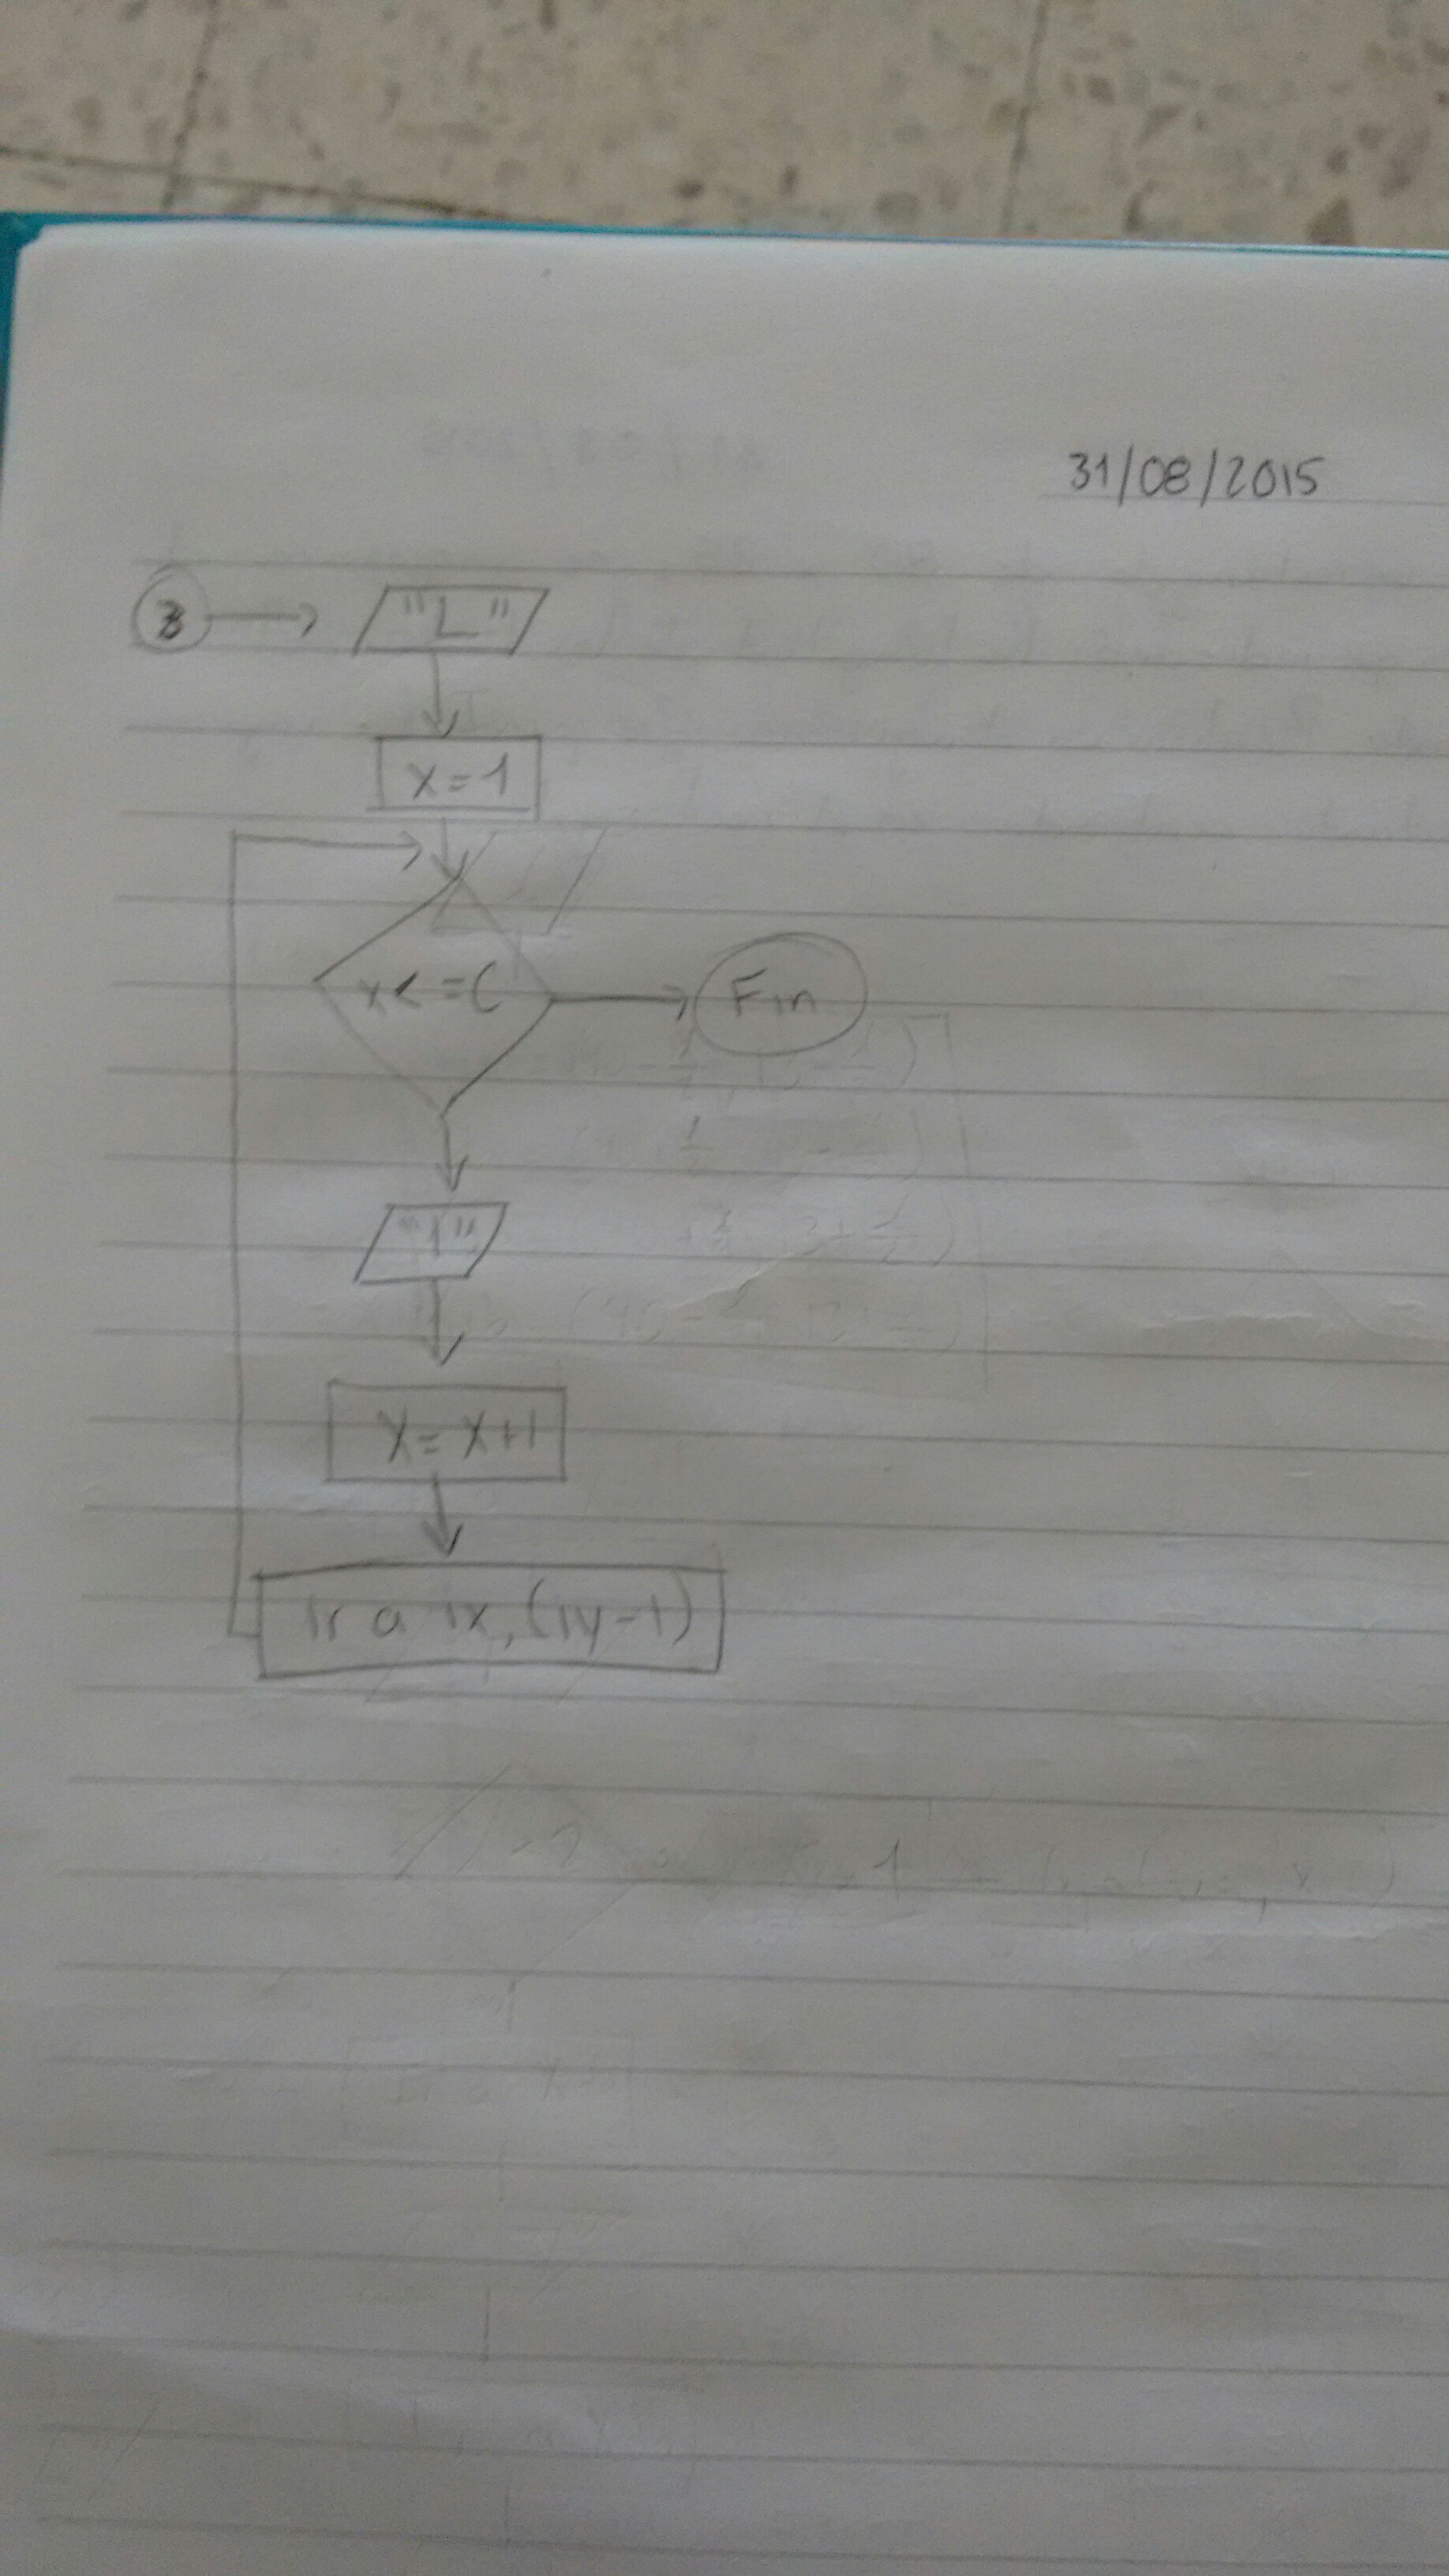 31/08/2015
"L"
x=1
x<=C
Fin
"1"
X=X+1
Ir a 1x,(1y-1)